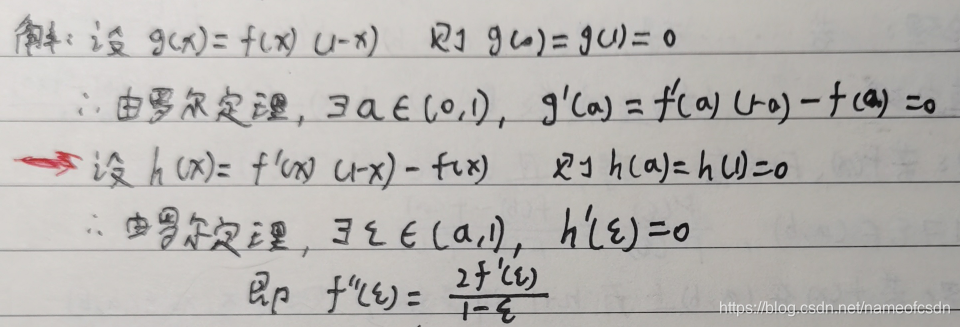 解：设 g(x)=f(x)(1-x) 则 g(0)=g(1)=0
∴由罗尔定理，∃a∈(0,1)，g'(a)=f'(a)(1-a)-f(a)=0
设 h(x)=f'(x)(1-x)-f(x) 则 h(a)=h(1)=0
∴由罗尔定理，∃ξ∈(a,1)，h'(ξ)=0
即 f''(ξ)=2f'(ξ)/(1-ξ)
https://blog.csdn.net/nameofcsdn